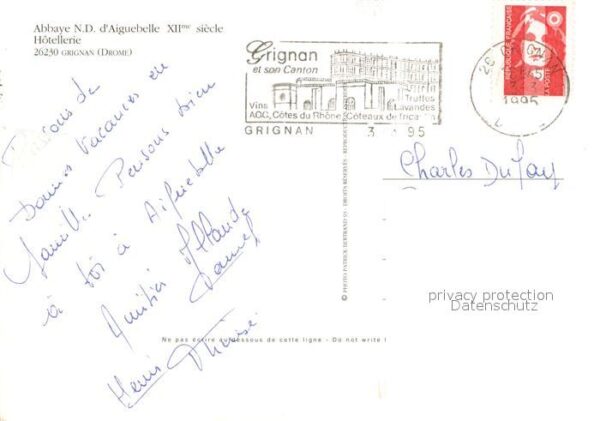 Abbaye N.D. d'Aiguebelle XIIme siècle
Hôtellerie
26230 GRIGNAN (DROME)
Grignan
et son Canton
Truffes
Vins Lavandes
AOC, Côtes du Rhône, Côteaux de Tricastin
GRIGNAN 3 95
REPUBLIQUE FRANÇAISE
LA POSTE
26
1995
de
Bonnes Vacances en
famille. Pensons bien
à toi à Aiguebelle
Amitiés
Daniel
Henri Thérèse
Charles Dufay
© PHOTO PATRICK BERTRAND DROITS RÉSERVÉS
Ne pas écrire au-dessous de cette ligne - Do not write
privacy protection
Datenschutz